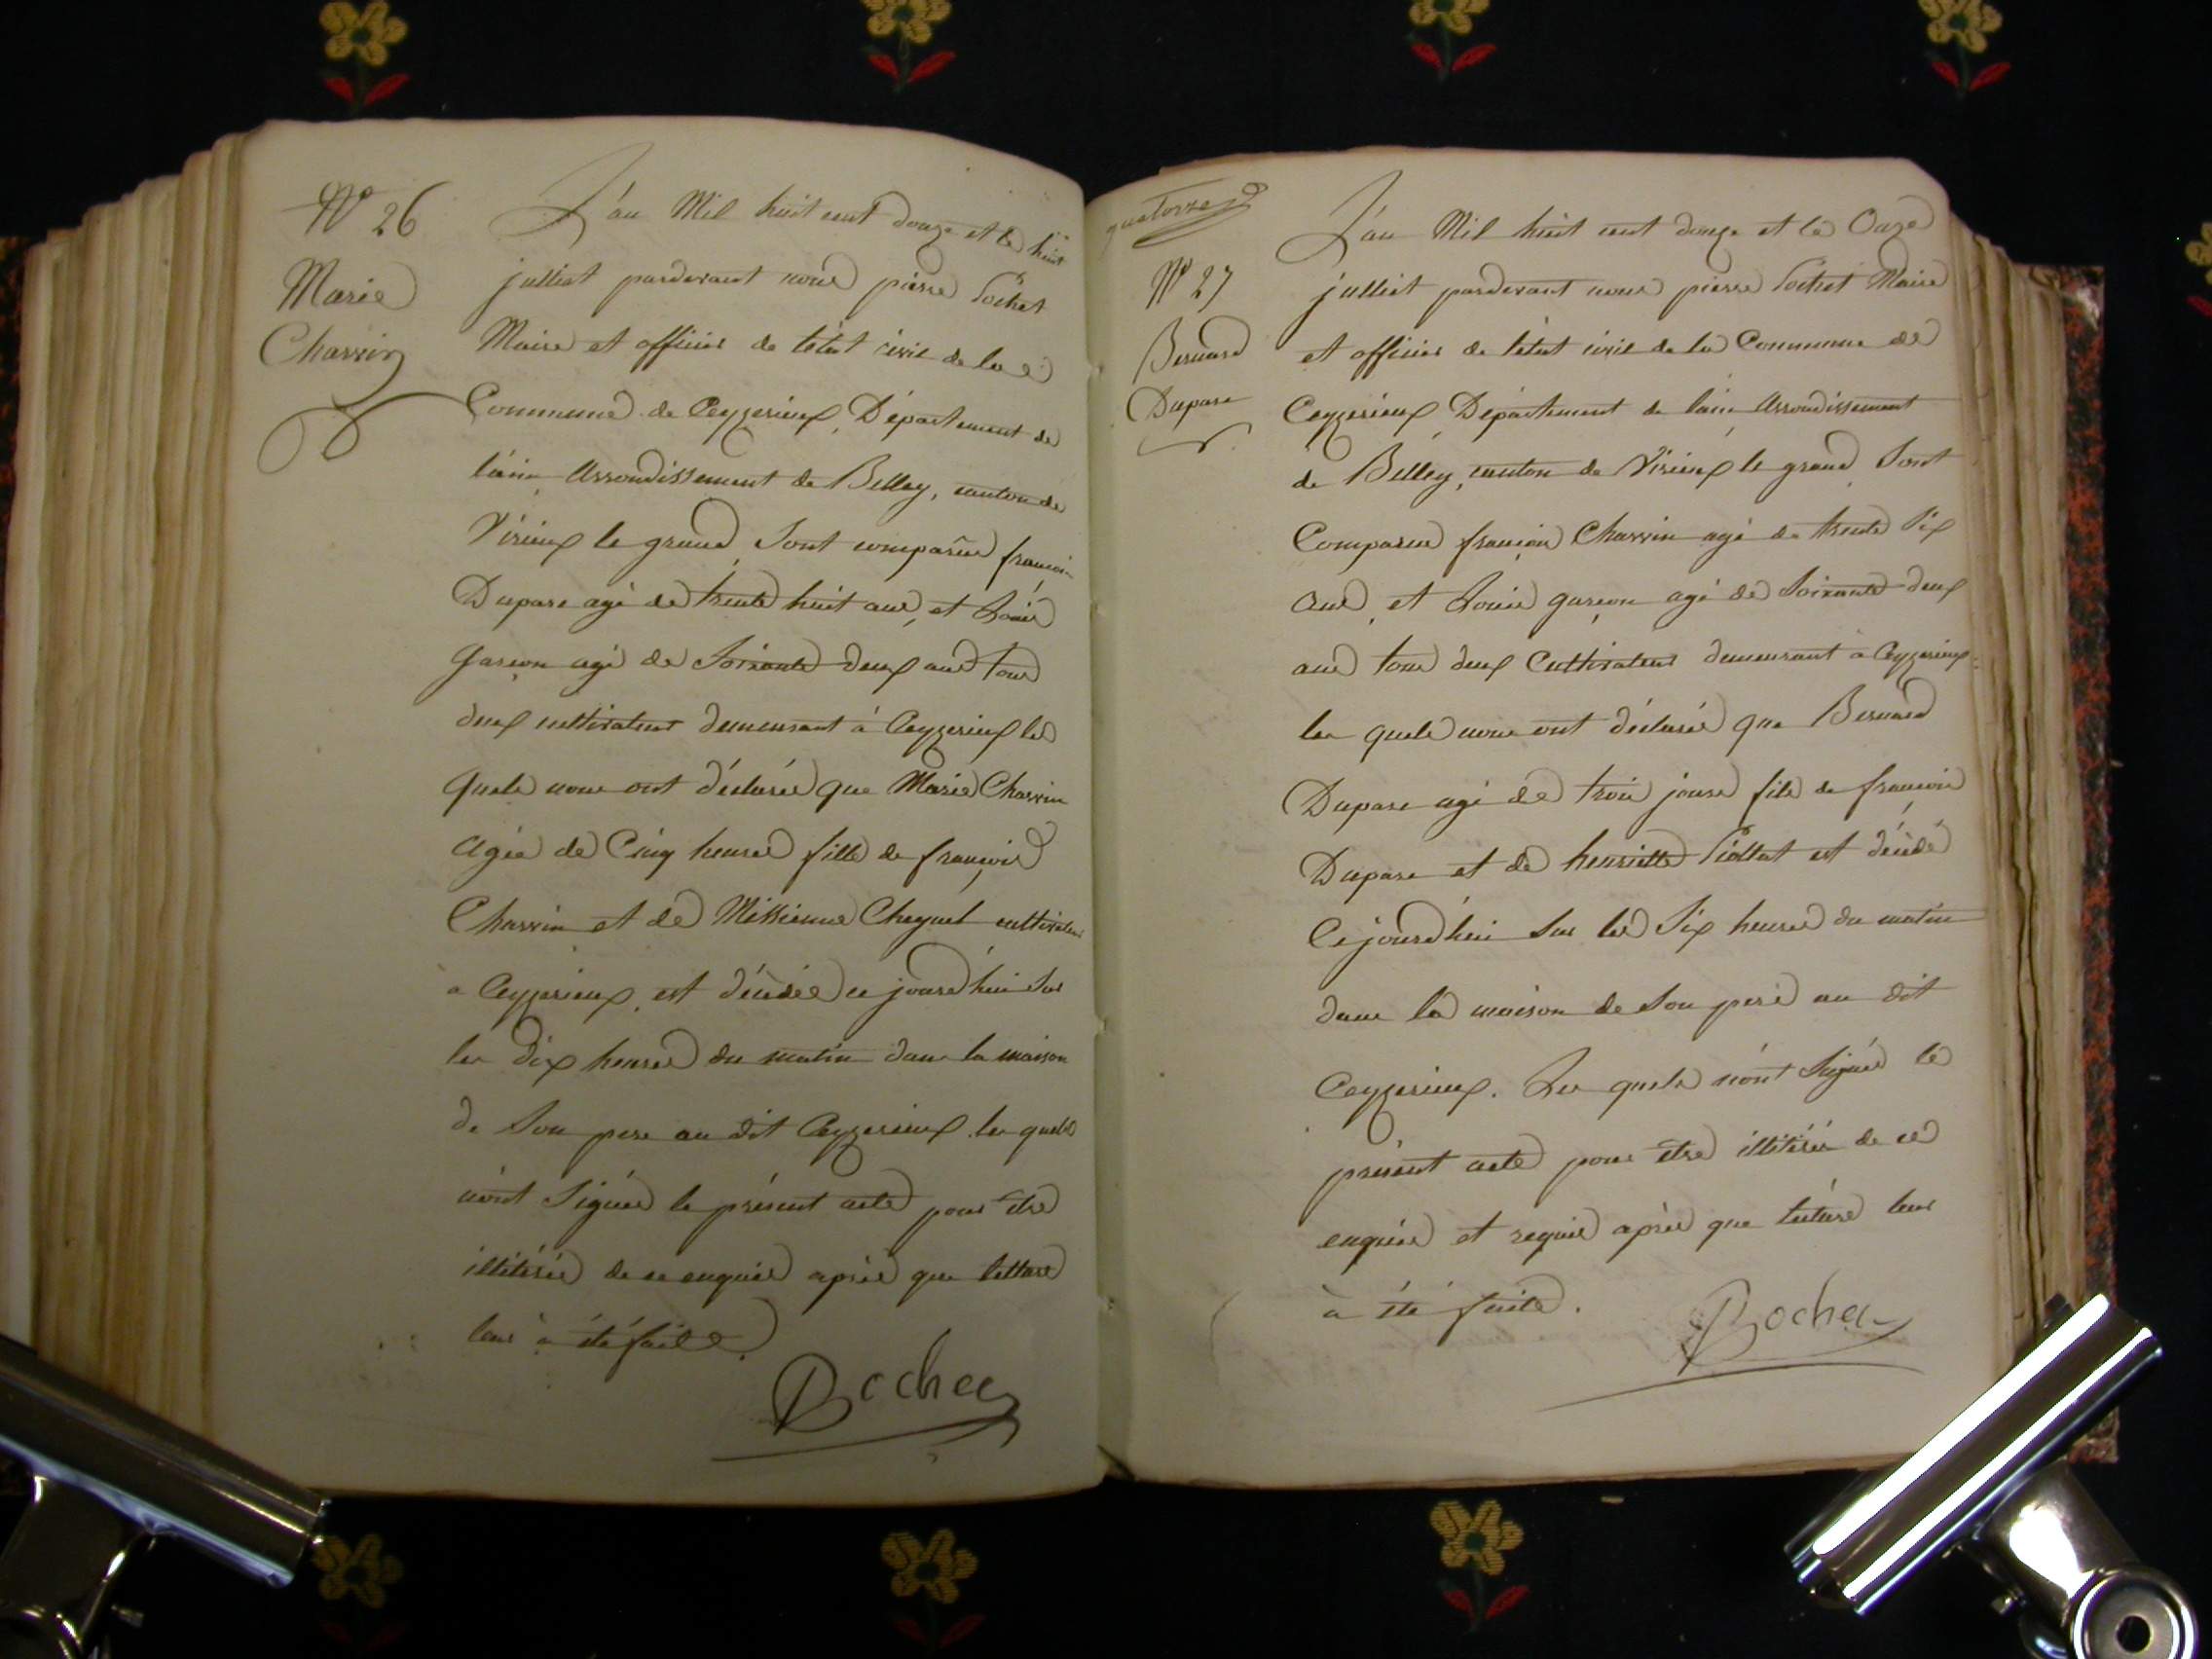 N° 26
Marie
Charvin
L'an Mil huit cent douze et le huit
julliet pardevant nous pierre Pochet
Maire et officier de l'état civil de la
Commune de Ceyzerieux, Département de
l'ain Arrondissement de Belley, canton de
Virieux le grand, Sont comparûs françois
Dupare agé de trente huit ans, et Louis
Garçon agé de Soixante deux ans tous
deux cultivateurs demeurant à Ceyzerieux les
quels nous ont déclarés que Marie Charvin
agée de Cinq heures fille de françois
Charvin et de Chequet cultivateurs
a Ceyzerieux, est décédée ce jourd'hui Sur
les dix heures du matin dans la maison
de Son pere au dit Ceyzerieux les quels
n'ont Signés le présent acte pour être
illitérés de ce enquis après que letture
leur à été faite.
Pochet
quatorze
N° 27
Bernard
Dupare
L'an Mil huit cent douze et le Onze
julliet pardevant nous pierre Pochet Maire
et officier de l'état civil de la Commune de
Ceyzerieux, Département de l'ain Arrondissement
de Belley, canton de Virieux le grand, Sont
Comparus françois Charvin agé de trente Six
ans, et Louis garçon agé de Soixante deux
ans tous deux Cultivateurs demeurant à Ceyzerieux
les quels nous ont déclarés que Bernard
Dupare agé de trois jours fils de françois
Dupare et de henriette Piollat est décédé
Ce jourd'hui Sur les Six heures du matin
dans la maison de Son pere au dit
Ceyzerieux. Les quels n'ont Signés le
présent acte pour être illitérés de ce
enquis et requis après que letture leur
à été faite.
Pochet